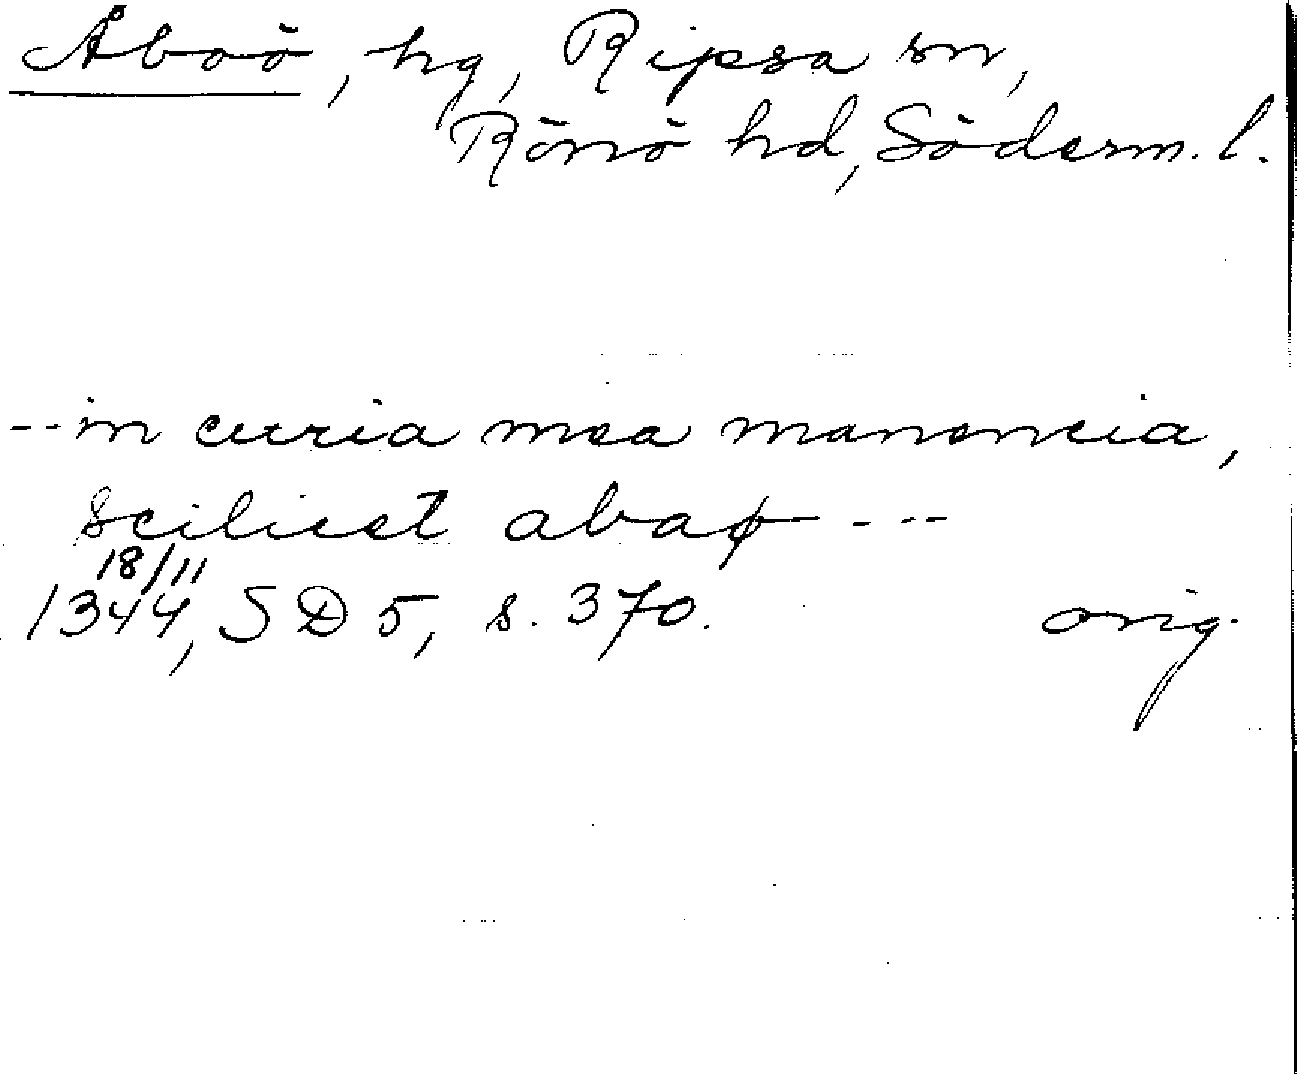 Åboö, hg, Ripsa sn,
Rönö hd, Söderm. l.
-- in curia mea manencia,
scilicet abaø - --
18/11
1344, SD 5, s. 370. orig.